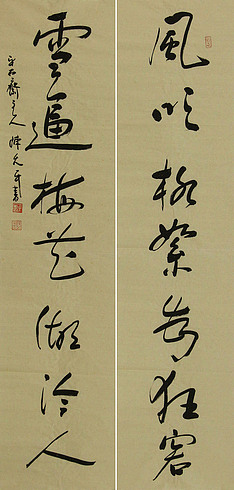 風吹柳絮為狂客
雪逼梅花做冷人
齋主人
書